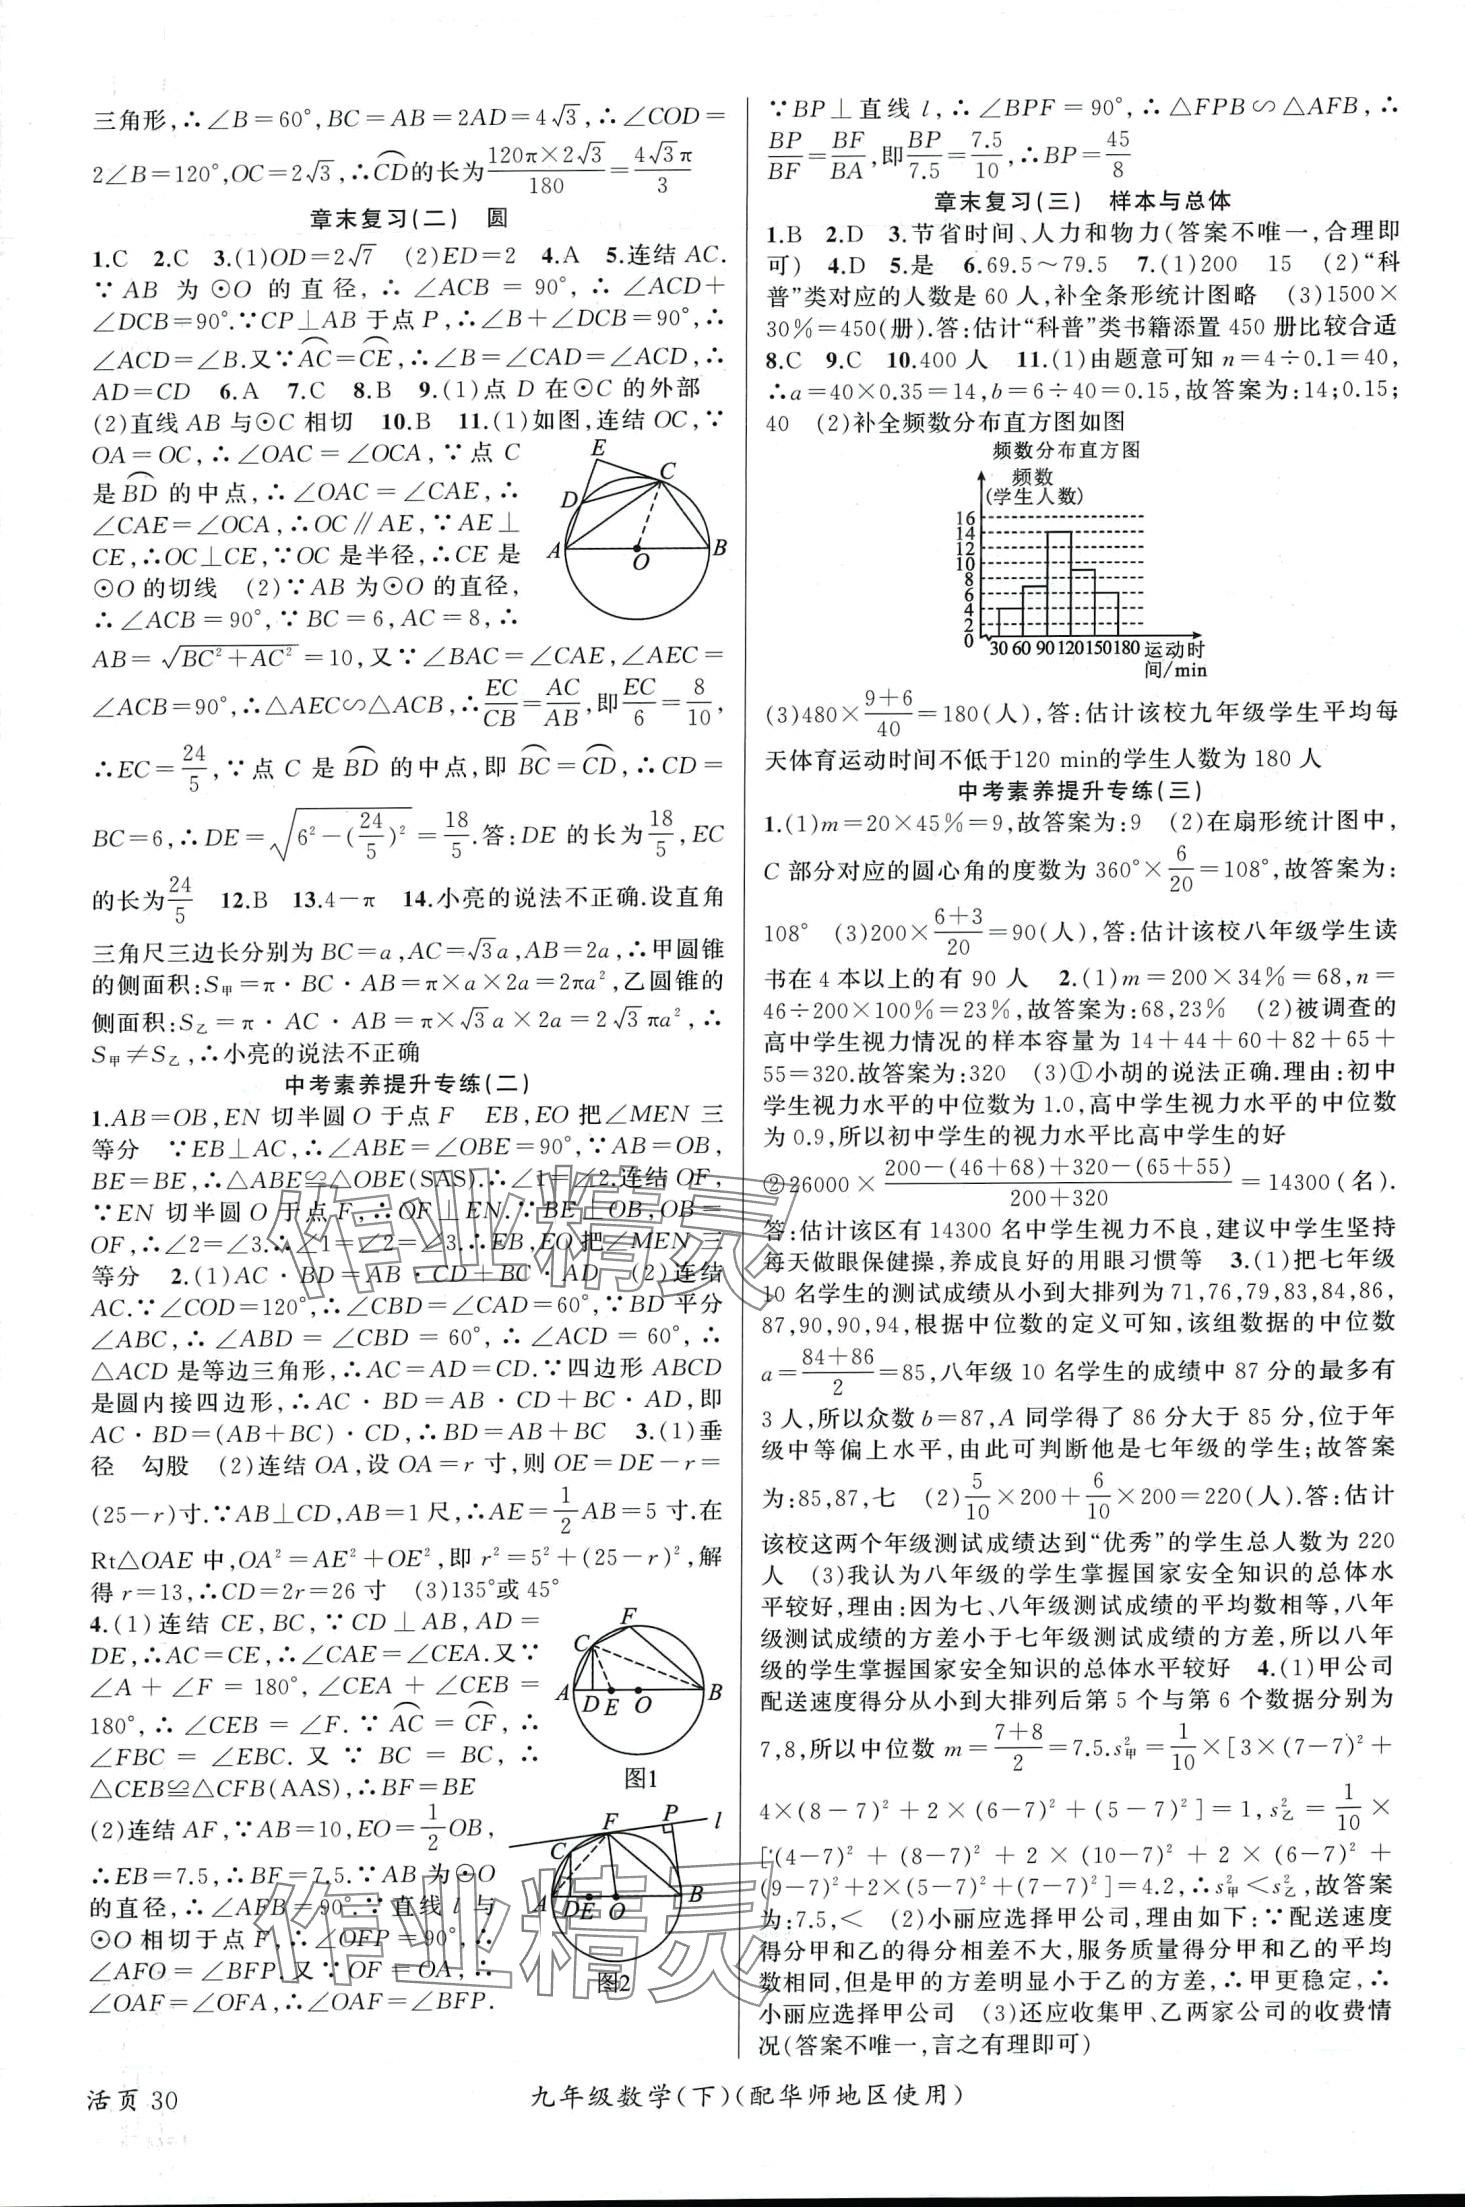 三角形,∴∠B=60°,BC=AB=2AD=4√3,∴∠COD=
2∠B=120°,OC=2√3,∴⌒CD的长为120π×2√3/180=4√3π/3
章末复习(二) 圆
1.C 2.C 3.(1)OD=2√7 (2)ED=2 4.A 5.连结 AC.
∵AB 为⊙O 的直径,∴∠ACB=90°,∴∠ACD+
∠DCB=90°.∵CP⊥AB 于点 P,∴∠B+∠DCB=90°,∴
∠ACD=∠B.又∵⌒AC=⌒CE,∴∠B=∠CAD=∠ACD,∴
AD=CD 6.A 7.C 8.B 9.(1)点 D 在⊙C 的外部
(2)直线 AB 与⊙C 相切 10.B 11.(1)如图,连结 OC,∵
OA=OC,∴∠OAC=∠OCA,∵点 C
是⌒BD 的中点,∴∠OAC=∠CAE,∴
∠CAE=∠OCA,∴OC∥AE,∵AE⊥
CE,∴OC⊥CE,∵OC 是半径,∴CE 是
⊙O 的切线 (2)∵AB 为⊙O 的直径,
∴∠ACB=90°,∵BC=6,AC=8,∴
E
C
D
A
O
B
AB=√(BC²+AC²)=10,又∵∠BAC=∠CAE,∠AEC=
∠ACB=90°,∴△AEC∽△ACB,∴EC/CB=AC/AB,即EC/6=8/10,
∴EC=24/5,∵点 C 是⌒BD 的中点,即⌒BC=⌒CD,∴CD=
BC=6,∴DE=√(6²-(24/5)²)=18/5.答:DE 的长为18/5,EC
的长为24/5 12.B 13.4-π 14.小亮的说法不正确.设直角
三角尺三边长分别为 BC=a,AC=√3a,AB=2a,∴甲圆锥
的侧面积:S甲=π·BC·AB=π×a×2a=2πa²,乙圆锥的
侧面积:S乙=π·AC·AB=π×√3a×2a=2√3πa²,∴
S甲≠S乙,∴小亮的说法不正确
中考素养提升专练(二)
1.AB=OB,EN 切半圆 O 于点 F EB,EO 把∠MEN 三
等分 ∵EB⊥AC,∴∠ABE=∠OBE=90°,∵AB=OB,
BE=BE,∴△ABE≌△OBE(SAS).∴∠1=∠2.连结 OF,
∵EN 切半圆 O 于点 F,∴OF⊥EN.∵BE⊥OB,OB=
OF,∴∠2=∠3.∴∠1=∠2=∠3.∴EB,EO 把∠MEN 三
等分 2.(1)AC·BD=AB·CD+BC·AD (2)连结
AC.∵∠COD=120°,∴∠CBD=∠CAD=60°,∵BD 平分
∠ABC,∴∠ABD=∠CBD=60°,∴∠ACD=60°,∴
△ACD 是等边三角形,∴AC=AD=CD.∵四边形 ABCD
是圆内接四边形,∴AC·BD=AB·CD+BC·AD,即
AC·BD=(AB+BC)·CD,∴BD=AB+BC 3.(1)垂
径 勾股 (2)连结 OA,设 OA=r 寸,则 OE=DE-r=
(25-r)寸.∵AB⊥CD,AB=1 尺,∴AE=1/2AB=5 寸.在
Rt△OAE 中,OA²=AE²+OE²,即 r²=5²+(25-r)²,解
得 r=13,∴CD=2r=26 寸 (3)135°或 45°
4.(1)连结 CE,BC,∵CD⊥AB,AD=
DE,∴AC=CE,∴∠CAE=∠CEA.又∵
∠A+∠F=180°,∠CEA+∠CEB=
180°,∴∠CEB=∠F.∵⌒AC=⌒CF,∴
∠FBC=∠EBC.又∵BC=BC,∴
△CEB≌△CFB(AAS),∴BF=BE
F
C
A
D
E
O
B
图1
(2)连结 AF,∵AB=10,EO=1/2OB,
∴EB=7.5,∴BF=7.5.∵AB 为⊙O
的直径,∴∠AFB=90°.∵直线 l 与
⊙O 相切于点 F,∴∠OFP=90°,∴
∠AFO=∠BFP.又∵OF=OA,∴
∠OAF=∠OFA,∴∠OAF=∠BFP.
F
P
l
C
A
DE
O
B
图2
∵BP⊥直线 l,∴∠BPF=90°,∴△FPB∽△AFB,∴
BP/BF=BF/BA,即BP/7.5=7.5/10,∴BP=45/8
章末复习(三) 样本与总体
1.B 2.D 3.节省时间、人力和物力(答案不唯一,合理即
可) 4.D 5.是 6.69.5~79.5 7.(1)200 15 (2)“科
普”类对应的人数是 60 人,补全条形统计图略 (3)1500×
30%=450(册).答:估计“科普”类书籍添置 450 册比较合适
8.C 9.C 10.400 人 11.(1)由题意可知 n=4÷0.1=40,
∴a=40×0.35=14,b=6÷40=0.15,故答案为:14;0.15;
40 (2)补全频数分布直方图如图
频数分布直方图
频数
(学生人数)
16
14
12
10
8
6
4
2
0
30 60 90 120 150 180 运动时
间/min
(3)480×(9+6)/40=180(人),答:估计该校九年级学生平均每
天体育运动时间不低于120 min的学生人数为 180 人
中考素养提升专练(三)
1.(1)m=20×45%=9,故答案为:9 (2)在扇形统计图中,
C 部分对应的圆心角的度数为 360°×6/20=108°,故答案为:
108° (3)200×(6+3)/20=90(人),答:估计该校八年级学生读
书在 4 本以上的有 90 人 2.(1)m=200×34%=68,n=
46÷200×100%=23%,故答案为:68,23% (2)被调查的
高中学生视力情况的样本容量为 14+44+60+82+65+
55=320.故答案为:320 (3)①小胡的说法正确.理由:初中
学生视力水平的中位数为 1.0,高中学生视力水平的中位数
为 0.9,所以初中学生的视力水平比高中学生的好
②26000×(200-(46+68)+320-(65+55))/(200+320)=14300(名).
答:估计该区有 14300 名中学生视力不良,建议中学生坚持
每天做眼保健操,养成良好的用眼习惯等 3.(1)把七年级
10 名学生的测试成绩从小到大排列为 71,76,79,83,84,86,
87,90,90,94,根据中位数的定义可知,该组数据的中位数
a=(84+86)/2=85,八年级 10 名学生的成绩中 87 分的最多有
3 人,所以众数 b=87,A 同学得了 86 分大于 85 分,位于年
级中等偏上水平,由此可判断他是七年级的学生;故答案
为:85,87,七 (2)5/10×200+6/10×200=220(人).答:估计
该校这两个年级测试成绩达到“优秀”的学生总人数为 220
人 (3)我认为八年级的学生掌握国家安全知识的总体水
平较好,理由:因为七、八年级测试成绩的平均数相等,八年
级测试成绩的方差小于七年级测试成绩的方差,所以八年
级的学生掌握国家安全知识的总体水平较好 4.(1)甲公司
配送速度得分从小到大排列后第 5 个与第 6 个数据分别为
7,8,所以中位数 m=(7+8)/2=7.5.s²甲=1/10×[3×(7-7)²+
4×(8-7)²+2×(6-7)²+(5-7)²]=1,s²乙=1/10×
[(4-7)²+(8-7)²+2×(10-7)²+2×(6-7)²+
(9-7)²+2×(5-7)²+(7-7)²]=4.2,∴s²甲<s²乙,故答案
为:7.5,< (2)小丽应选择甲公司,理由如下:∵配送速度
得分甲和乙的得分相差不大,服务质量得分甲和乙的平均
数相同,但是甲的方差明显小于乙的方差,∴甲更稳定,∴
小丽应选择甲公司 (3)还应收集甲、乙两家公司的收费情
况(答案不唯一,言之有理即可)
作业精灵
作业精灵
活页 30
九年级数学(下)(配华师地区使用)